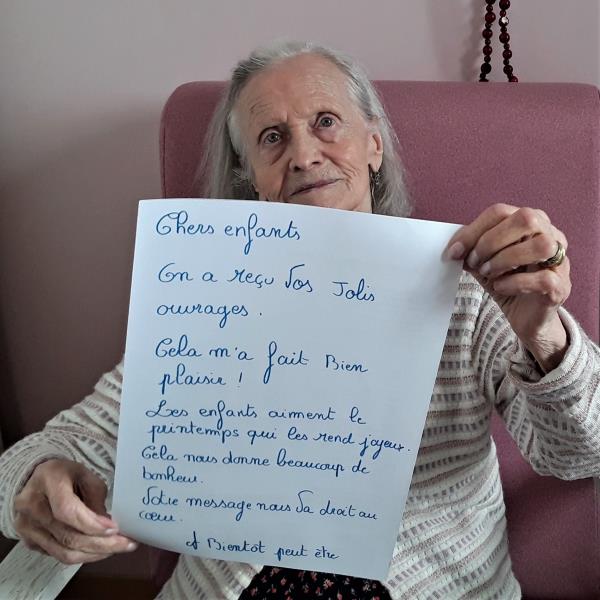 Chers enfants
On a reçu Vos Jolis
ouvrages.
Cela m'a fait Bien
plaisir !
Les enfants aiment le
printemps qui les rend joyeux.
Cela nous donne beaucoup de
bonheur.
Votre message nous Va droit au
cœur.
A Bientôt peut être